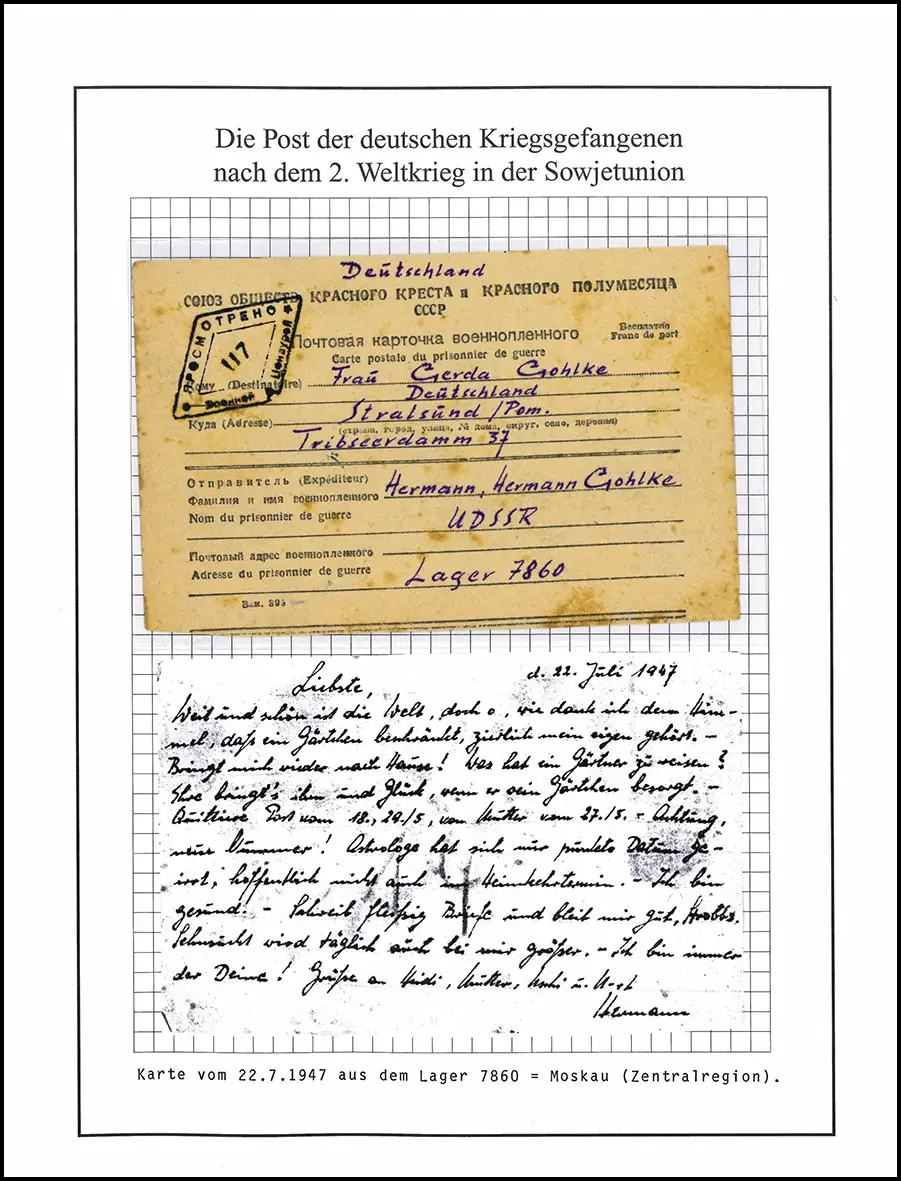 Die Post der deutschen Kriegsgefangenen
nach dem 2. Weltkrieg in der Sowjetunion
Deutschland
СОЮЗ ОБЩЕСТВ КРАСНОГО КРЕСТА и КРАСНОГО ПОЛУМЕСЯЦА
СССР
ПРОСМОТРЕНО
117
Военной Цензурой
Почтовая карточка военнопленного
Carte postale du prisonnier de guerre
Бесплатно
Franc de port
Кому (Destinataire) Frau Gerda Gohlke
Deutschland
Куда (Adresse) Stralsund / Pom.
(страна, город, улица, № дома, округ, село, деревня)
Tribseerdamm 37
Отправитель (Expéditeur)
Фамилия и имя военнопленного Hermann, Hermann Gohlke
Nom du prisonnier de guerre
UDSSR
Почтовый адрес военнопленного
Adresse du prisonnier de guerre Lager 7860
Зак. 893
d. 22. Juli 1947
Liebste,
Weit und schön ist die Welt, doch o, wie dank ich dem Him-
mel, daß ein Gärtchen beschränkt, zierlich mein eigen gehört. -
Bringt mich wieder nach Hause! Was hat ein Gärtner zu reisen?
Ehre bringt's ihm und Glück, wenn er sein Gärtchen besorgt. -
Quittiere Post vom 18., 29./5, von Mutter vom 27./5. - Achtung,
neue Nummer! Astrologe hat sich nur punkto Datum ge-
irrt, hoffentlich nicht auch im Heimkehrtermin. - Ich bin
gesund. - Schreib fleißig Briefe und bleib mir gut,
Sehnsucht wird täglich auch bei mir größer. - Ich bin immer
der Deine! Grüße an Heidi, Mutter, u.
Hermann
Karte vom 22.7.1947 aus dem Lager 7860 = Moskau (Zentralregion).